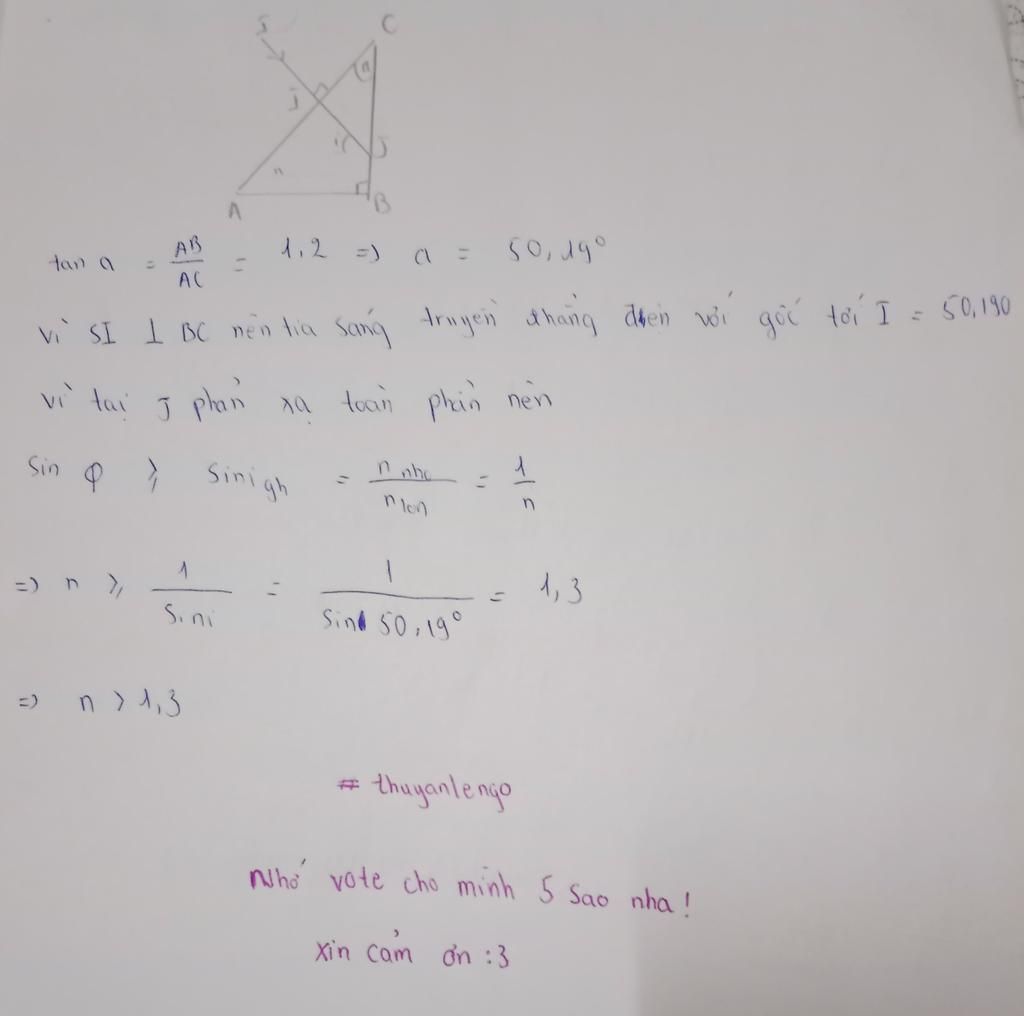 S
C
I
a
i
J
n
A
B
tan a = AB/AC = 1,2 => a = 50,19°
vì SI ⊥ BC nên tia sáng truyền thẳng đến với góc tới I = 50,190
vì tại J phản xạ toàn phần nên
Sin φ ≥ Sin igh = n nhỏ/n lớn = 1/n
=> n ≥ 1/Sini = 1/Sin 50,19° = 1,3
=> n > 1,3
# thuyanlengo
Nhớ vote cho mình 5 sao nha!
xin cảm ơn :3